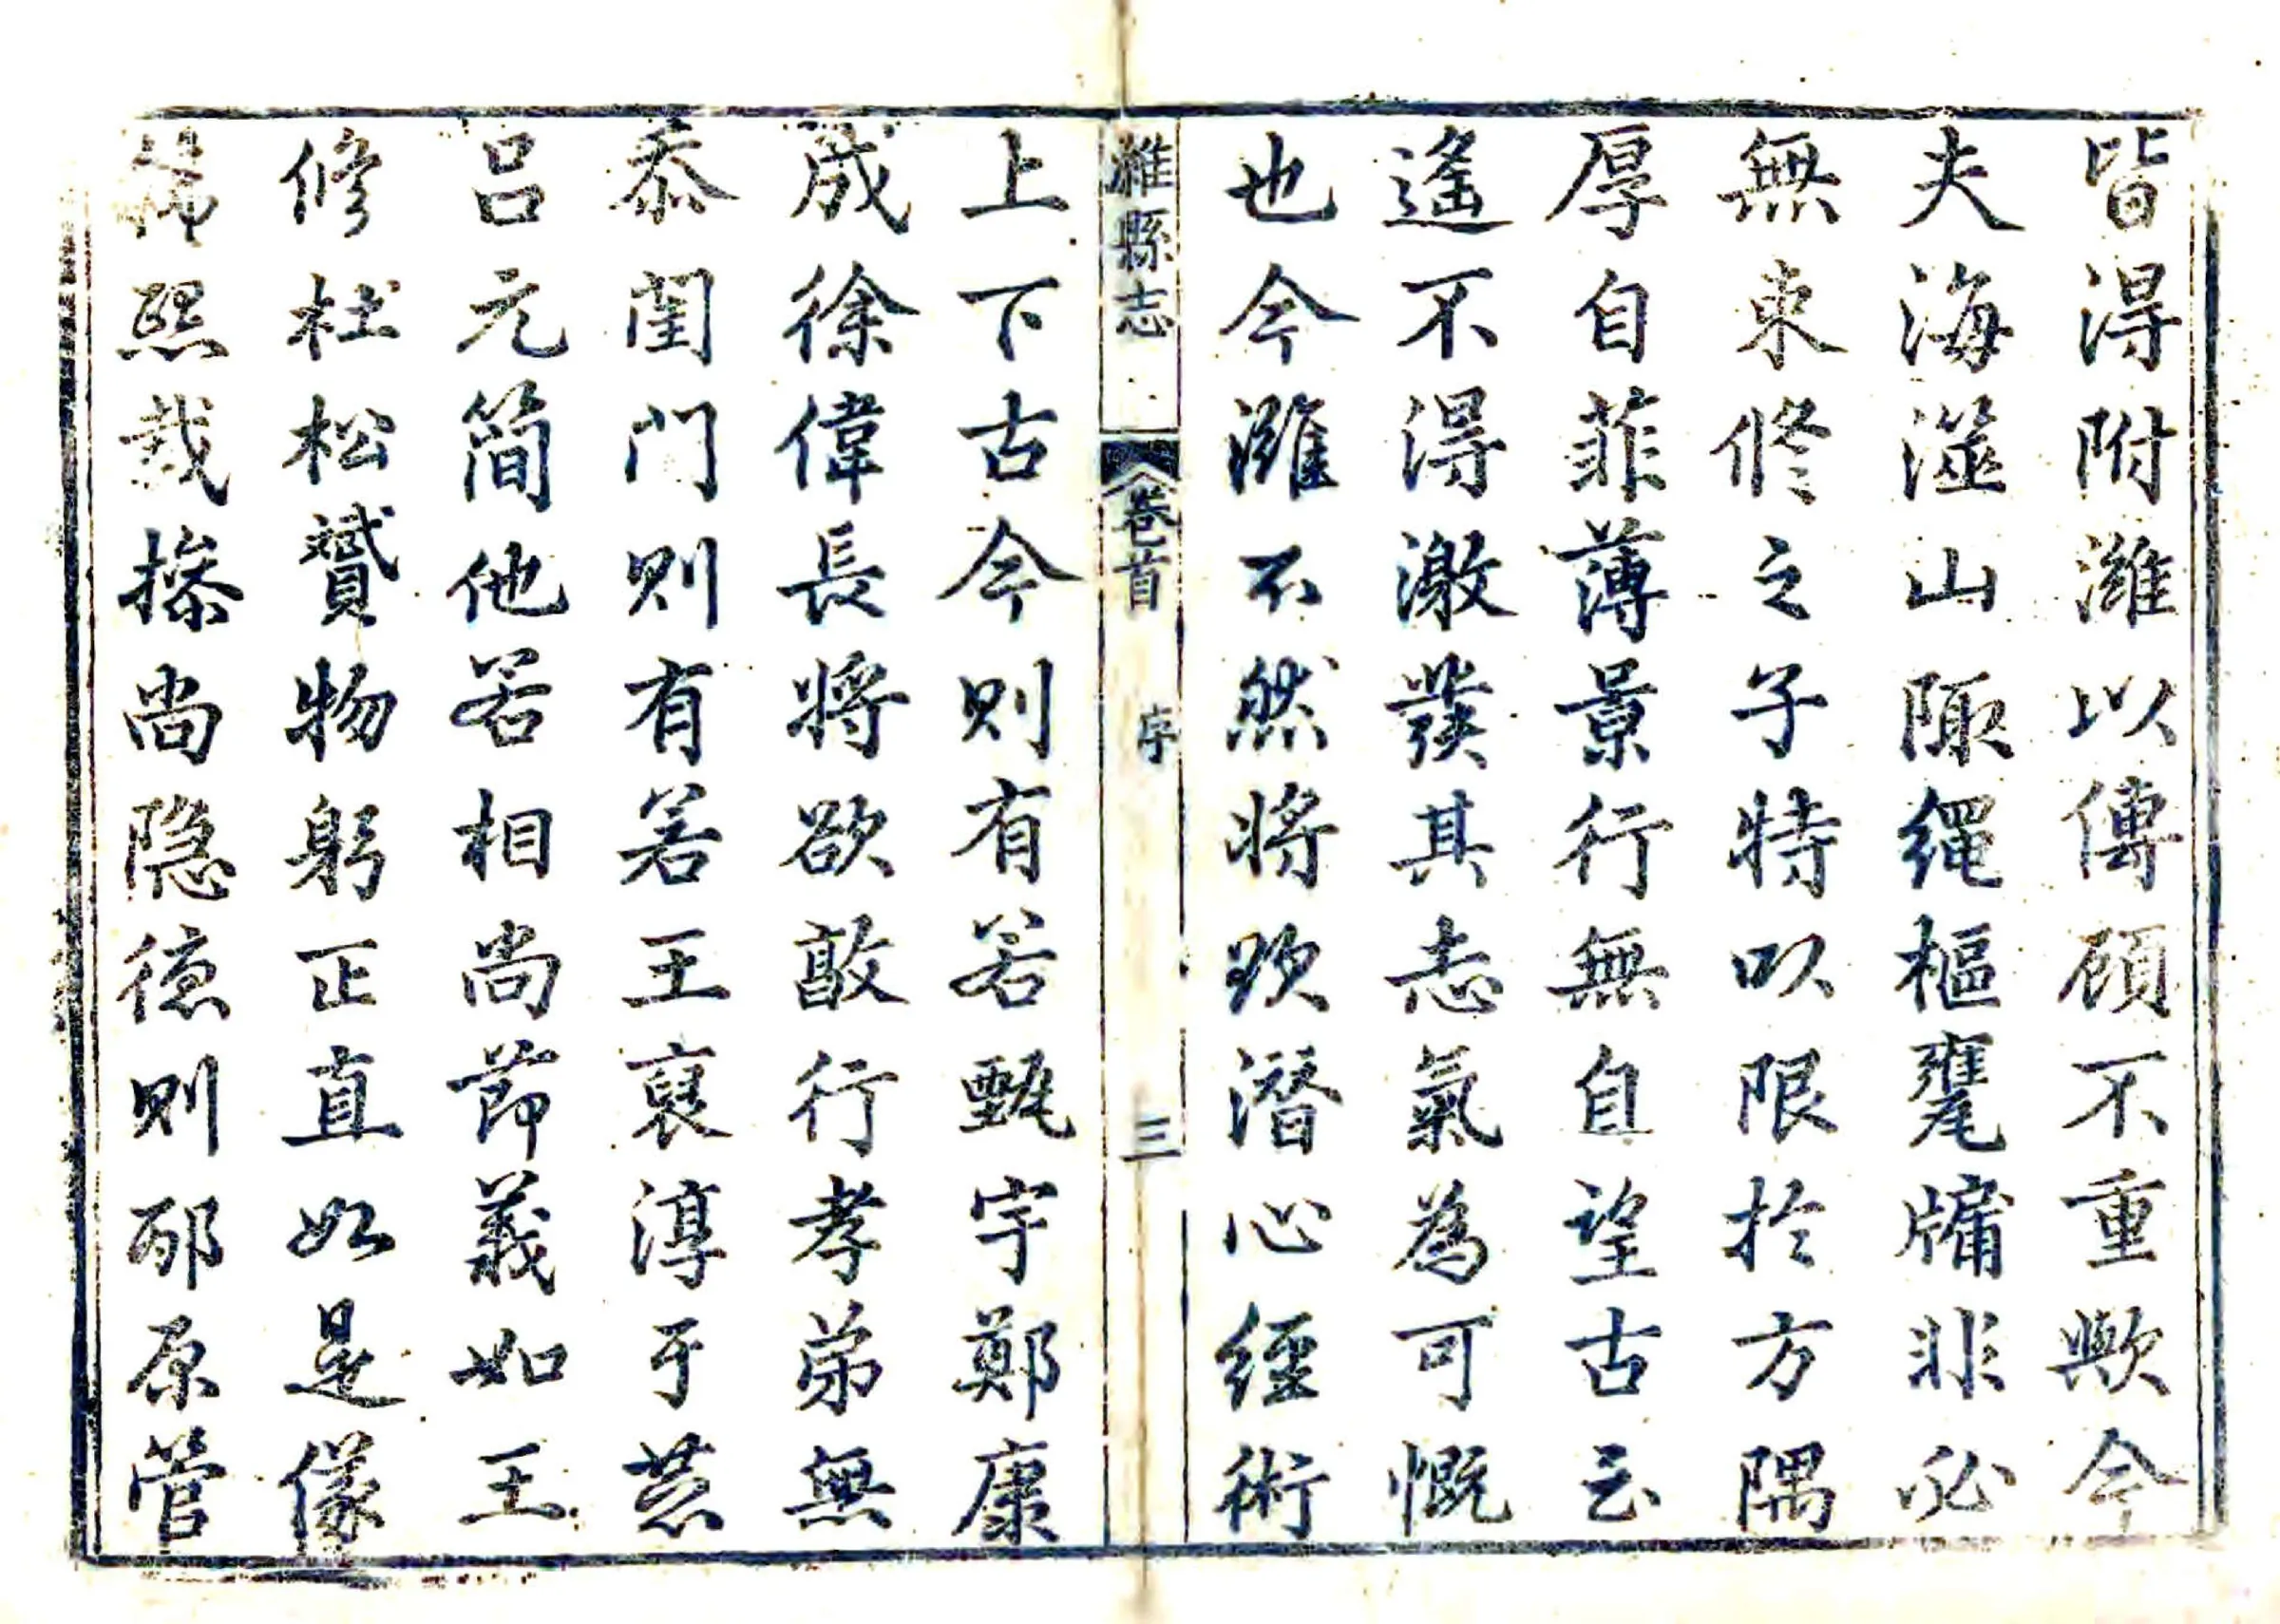 皆得附濰以傳顧不重歟今
夫海澨山陬繩樞甕牖非必
無束修之子特以限於方隅
厚自菲薄景行無自望古云
遙不得激發其志氣為可慨
也今濰不然將欲潛心經術
濰縣志
卷首
序
三
上下古今則有若甄宇鄭康
成徐偉長將欲敦行孝弟無
忝閨門則有若王裒淳于恭
呂元簡他若相尚節義如王
修杜松贇物躬正直如是儀
滕熙載操尚隐德則邴原管